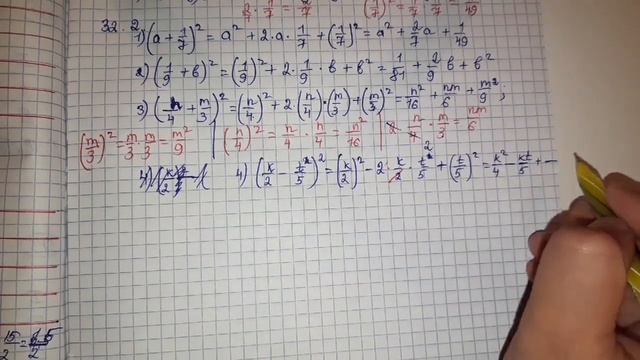 2/7 · 1/7 = 2/7 (1/7)² = 1/49
32.2
1) (a + 1/7)² = a² + 2·a·1/7 + (1/7)² = a² + 2/7 a + 1/49
2) (1/9 + в)² = (1/9)² + 2·1/9·в + в² = 1/81 + 2/9 в + в²
3) (n/4 + m/3)² = (n/4)² + 2(n/4)·(m/3) + (m/3)² = n²/16 + nm/6 + m²/9;
(m/3)² = m/3 · m/3 = m²/9 | (n/4)² = n/4 · n/4 = n²/16 | 2 n/4 · m/3 = nm/6
4) (k/2 - t/5)² = (k/2)² - 2·k/2·t/5 + (t/5)² = k²/4 - kt/5 + —